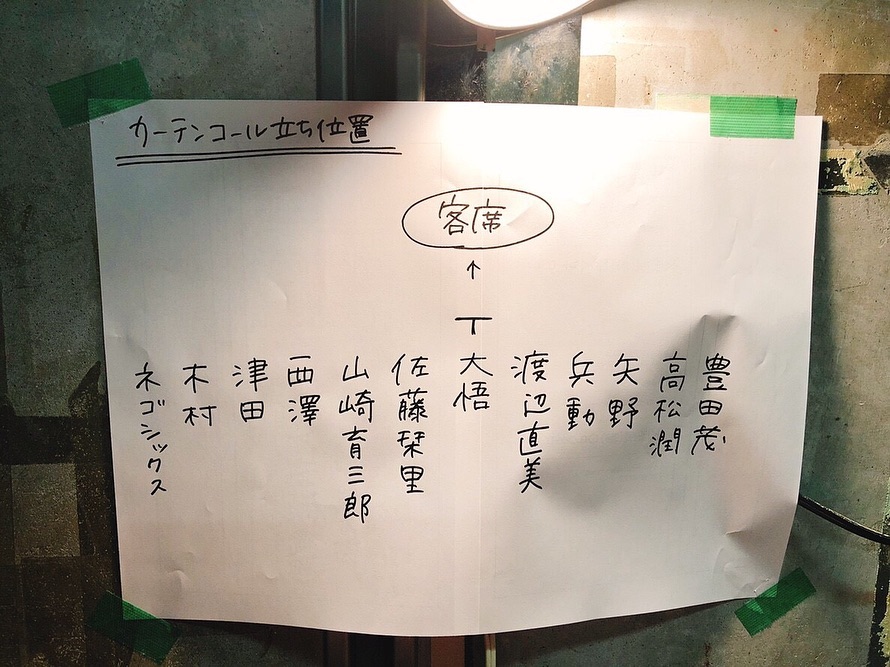 カーテンコール立ち位置
客席
↑
豊田茂
高松潤
矢野
兵動
渡辺直美
大悟
佐藤栞里
山崎育三郎
西澤
津田
木村
ネゴシックス